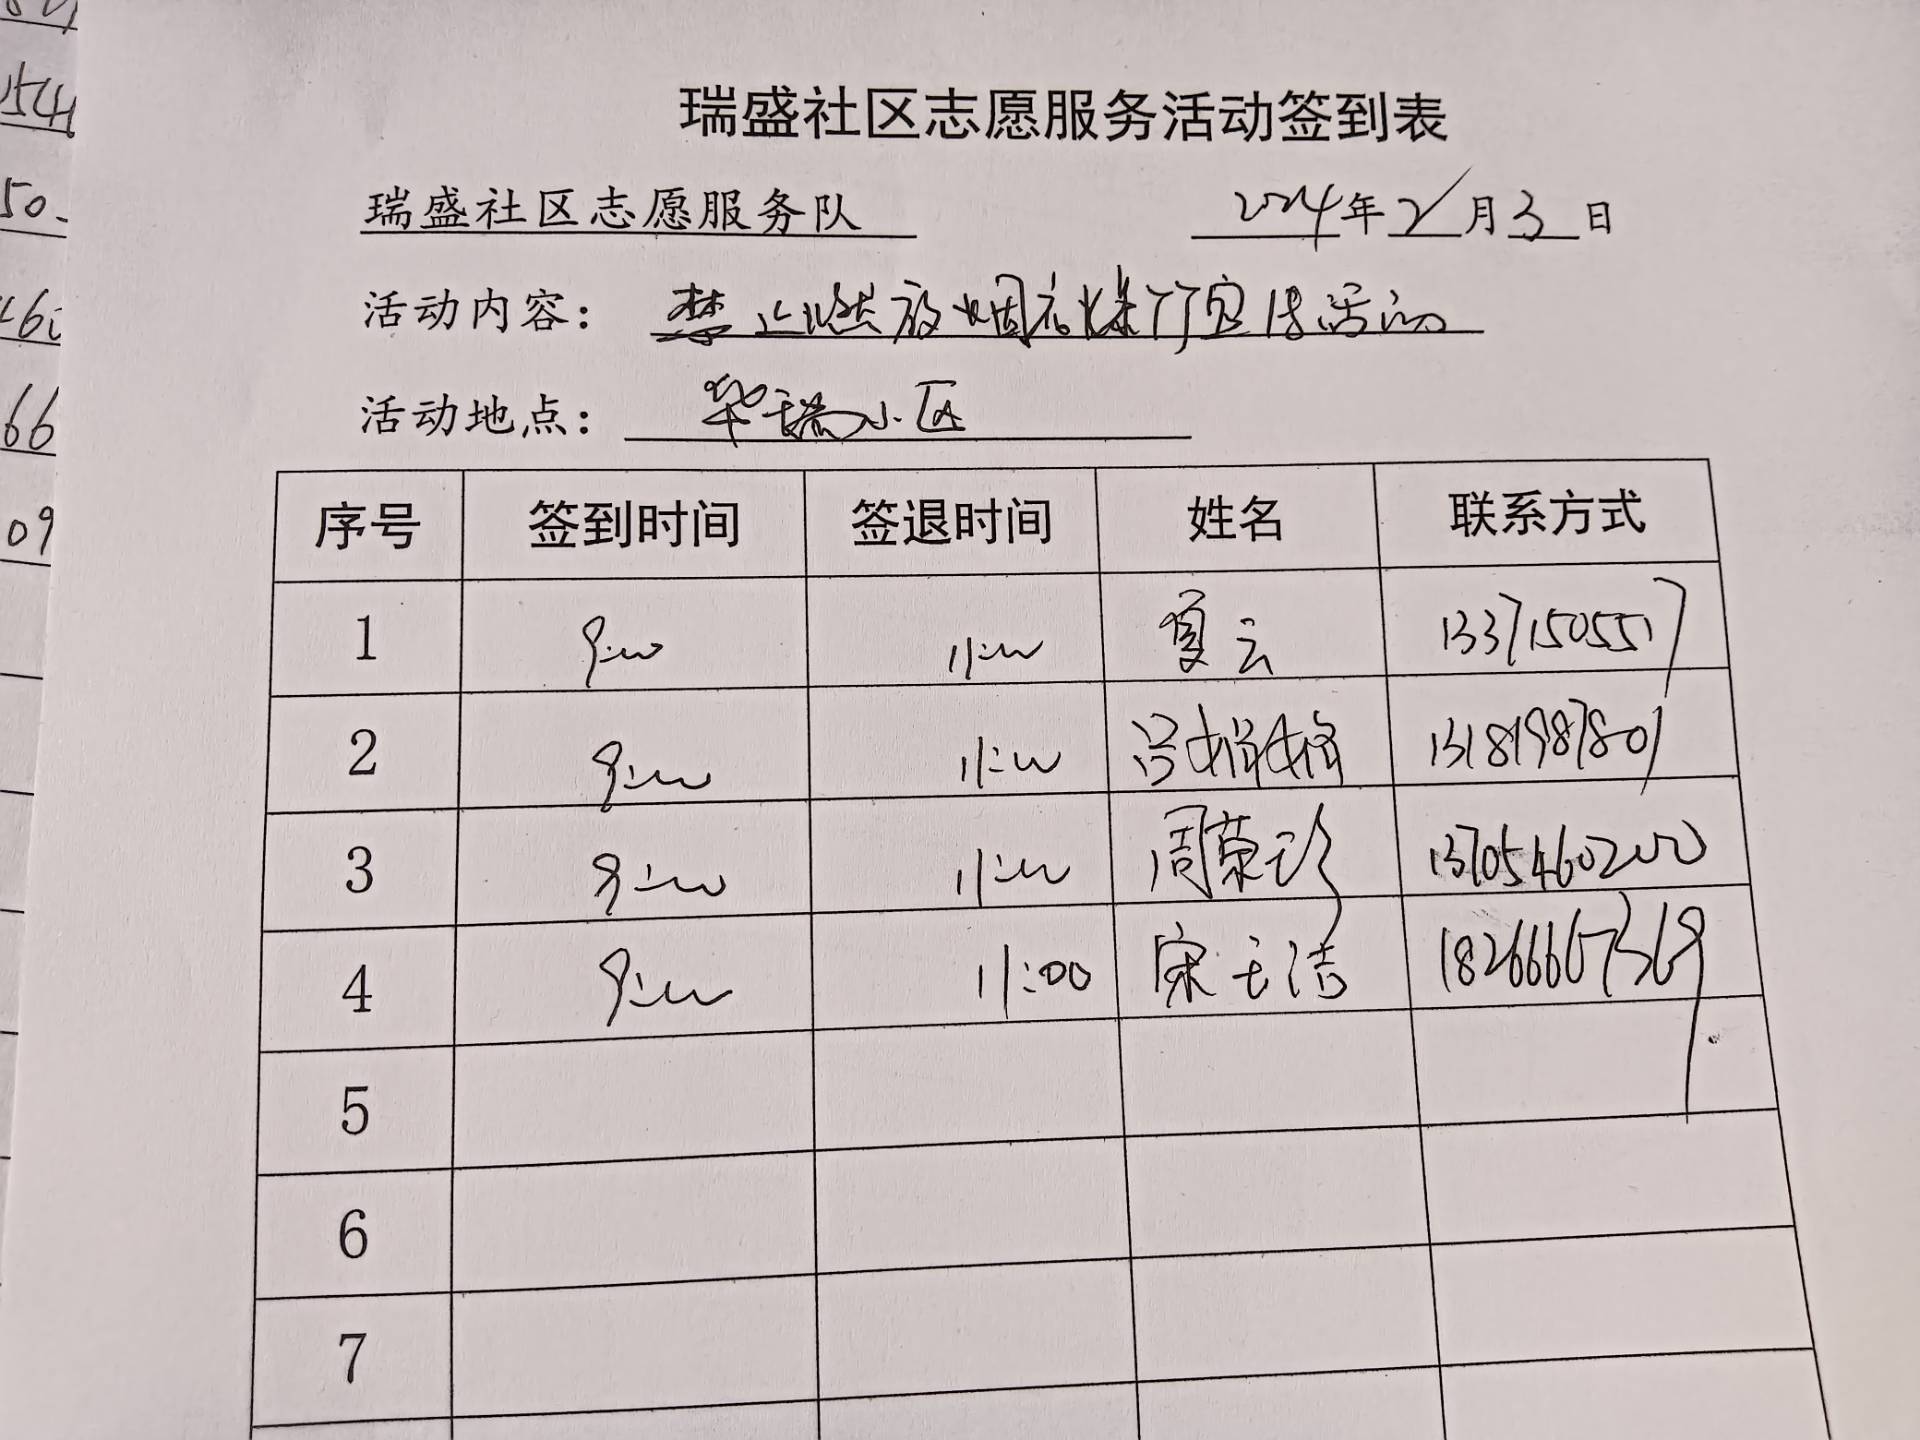 瑞盛社区志愿服务活动签到表
瑞盛社区志愿服务队 2024年2月3日
活动内容： 禁止燃放烟花爆竹宣传活动
活动地点： 华瑞小区
序号 签到时间 签退时间 姓名 联系方式
1 9:00 11:00 夏云 13371505517
2 9:00 11:00 吕娟娟 13181987801
3 9:00 11:00 周荣珍 13705460200
4 9:00 11:00 宋玉洁 18266667369
5
6
7
50
66
09